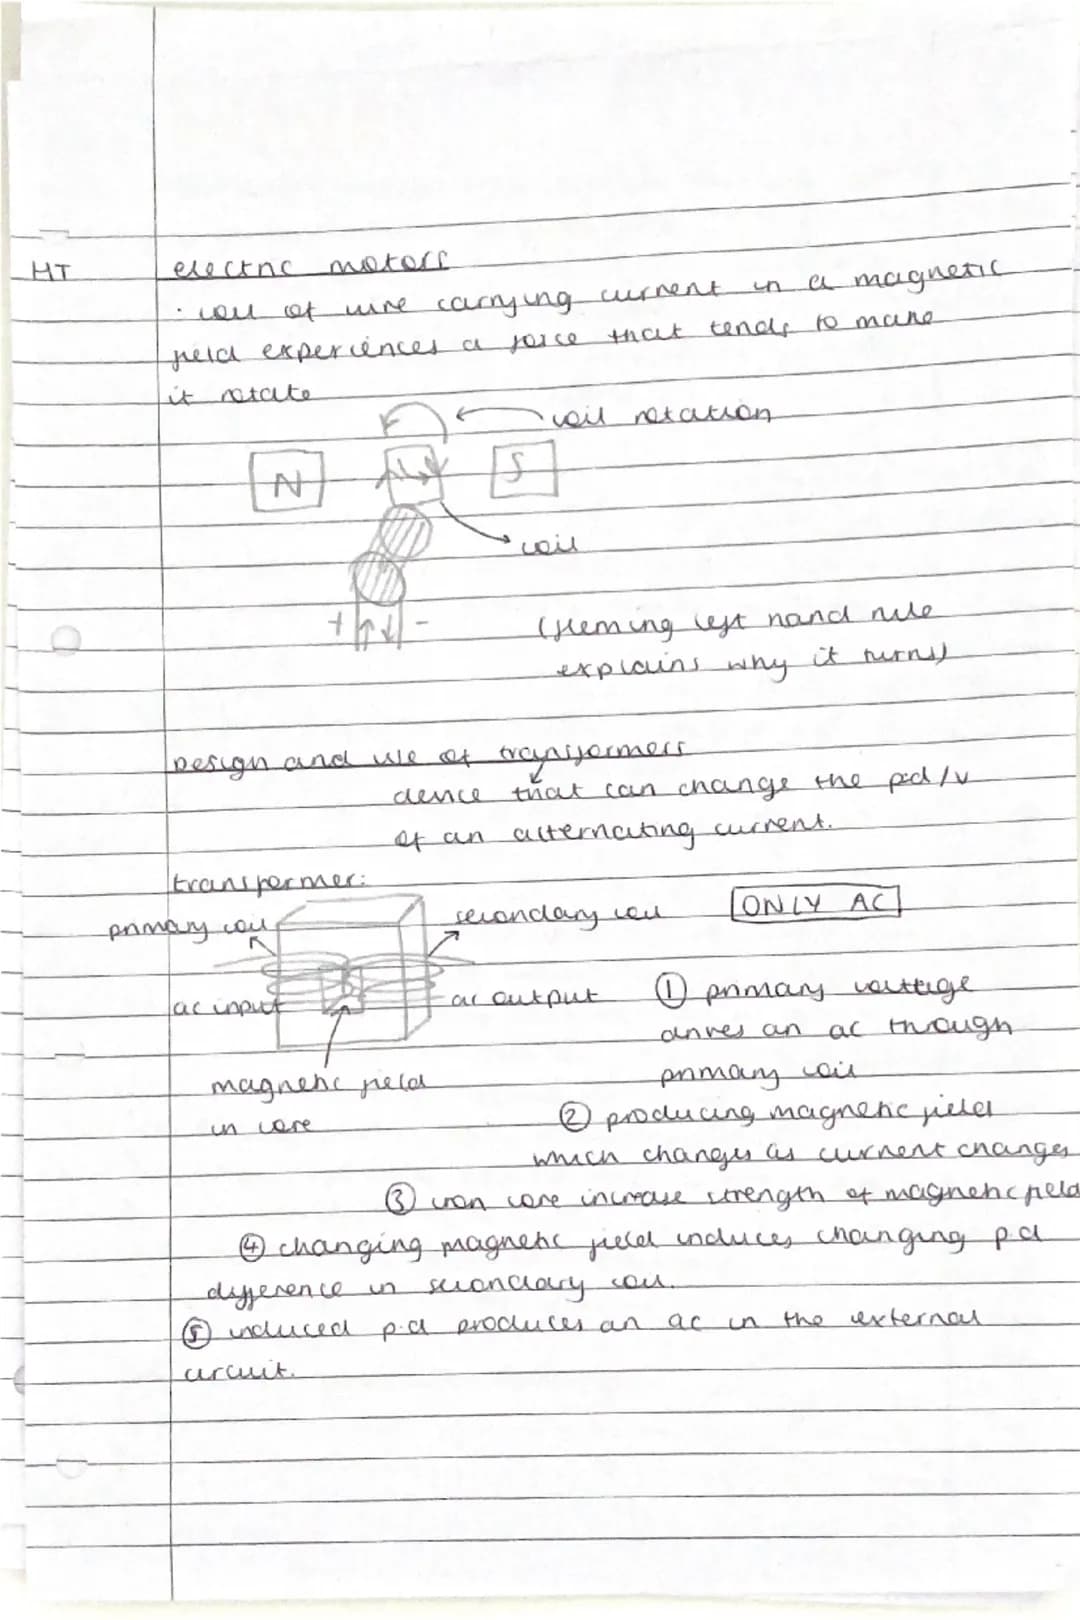 HT
electric motors
· coil of wire carrying current in a magnetic
field experiences a force that tends to make
it rotate
coil rotation
N
S
coil
+
-
(fleming left hand rule
explains why it turns)
Design and use of transformers
device that can change the p.d/v
of an alternating current.
transformer:
primary coil
secondary coil
ONLY AC
ac input
ac output
magnetic field
in core
① primary voltage
drives an ac through
primary coil
② producing magnetic field
which changes as current changes
③ iron core increase strength of magnetic field
④ changing magnetic field induces changing p.d
difference in secondary coil.
⑤ induced p.d produces an ac in the external
circuit.